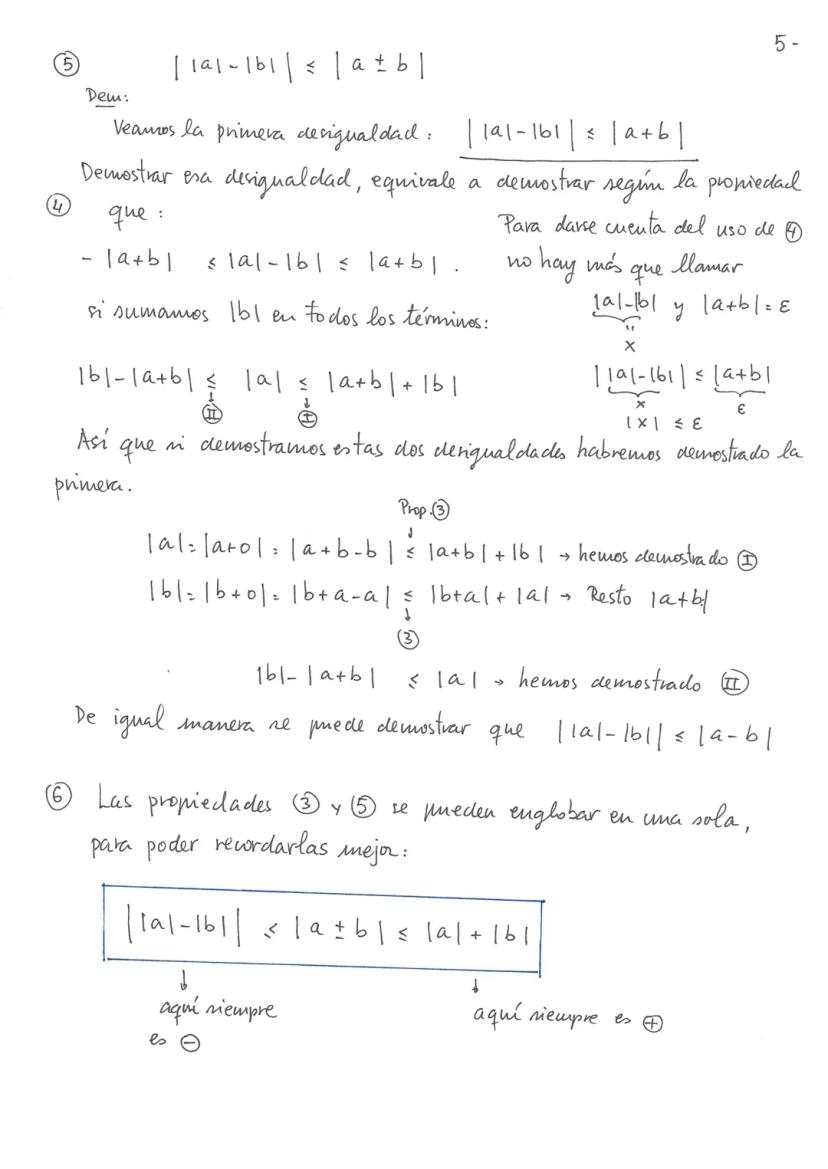 5-
⑤ | |a|-|b| | ≤ | a ± b |
Dem:
Veamos la primera desigualdad: | |a|-|b| | ≤ |a+b|
Demostrar esa desigualdad, equivale a demostrar según la propiedad
④ que:
Para darse cuenta del uso de ④
- |a+b| ≤ |a|-|b| ≤ |a+b|.
no hay más que llamar
si sumamos |b| en todos los términos:
|a|-|b| y |a+b| = ε
"
x
|b|-|a+b| ≤ |a| ≤ |a+b|+|b|
| |a|-|b| | ≤ |a+b|
Ⅱ Ⅰ
x ε
|x| ≤ ε
Así que si demostramos estas dos desigualdades habremos demostrado la
primera.
Prop.③
|a|=|a+0|=|a+b-b| ≤ |a+b|+|b| → hemos demostrado Ⅰ
|b|=|b+0|=|b+a-a| ≤ |b+a|+|a| → Resto |a+b|
③
|b|-|a+b| ≤ |a| → hemos demostrado Ⅱ
De igual manera se puede demostrar que | |a|-|b| | ≤ |a-b|
⑥ Las propiedades ③ y ⑤ se pueden englobar en una sola,
para poder recordarlas mejor:
| |a|-|b| | ≤ | a ± b | ≤ |a|+|b|
aquí siempre
es ⊖
aquí siempre es ⊕